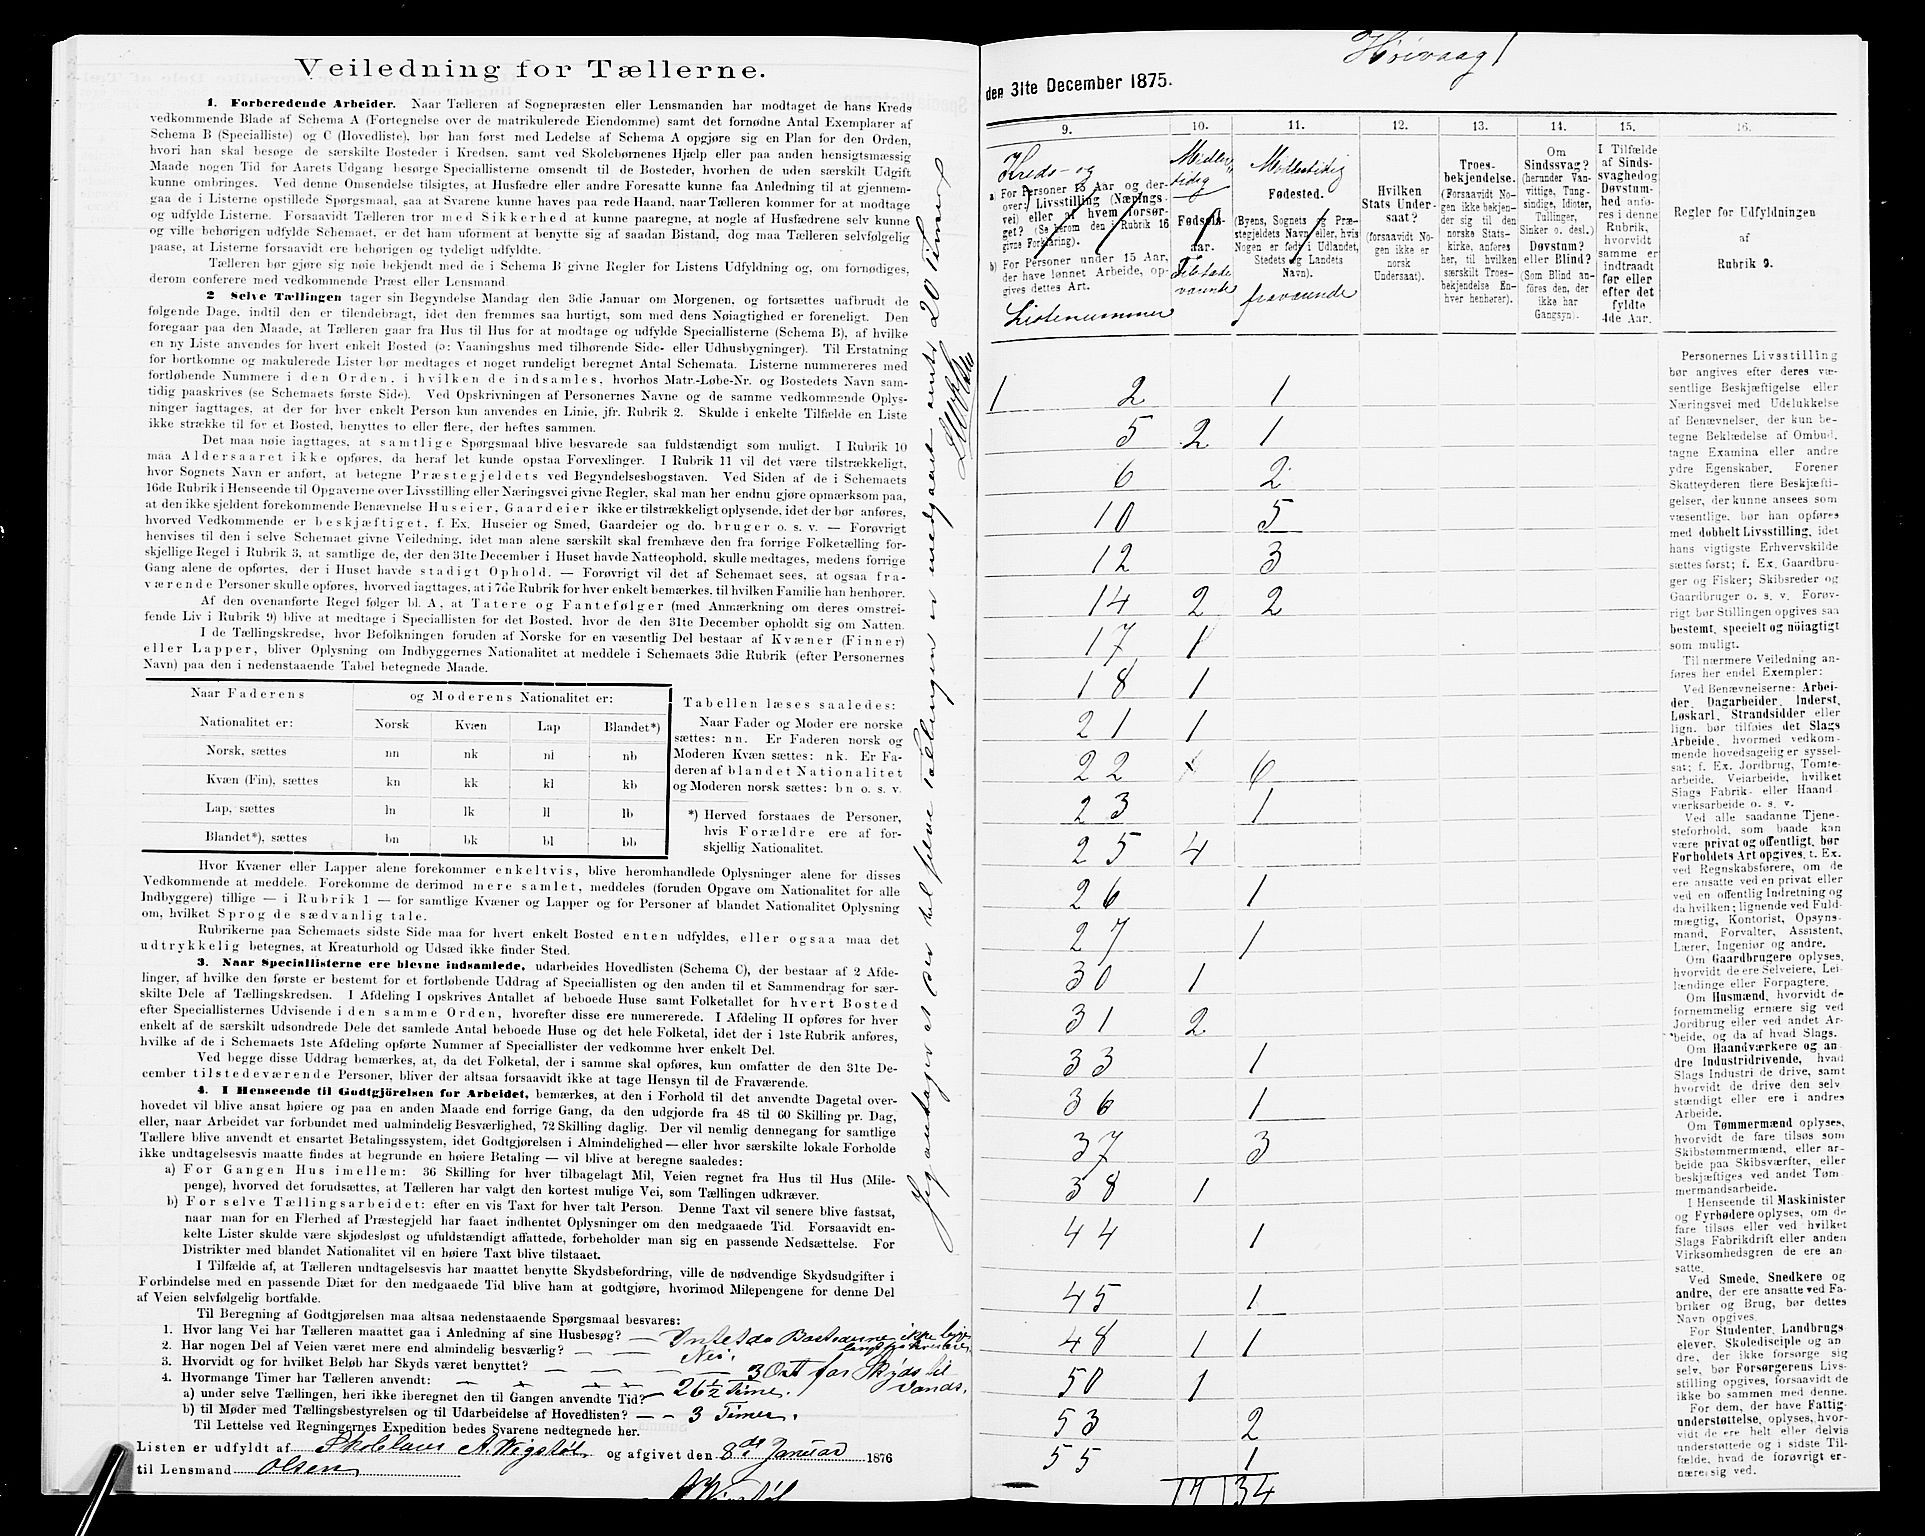 Veiledning for Tællerne.
1. Forberedende Arbeider. Naar Tælleren af Sognepræsten eller Lensmanden har modtaget de hans Kreds
vedkommende Blade af Schema A (Fortegnelse over de matrikulerede Eiendomme) samt det fornødne Antal Exemplarer af
Schema B (Specialliste) og C (Hovedliste), bør han først med Ledelse af Schema A opgjøre sig en Plan for den Orden,
hvori han skal besøge de særskilte Bosteder i Kredsen, samt ved Skolebørnenes Hjælp eller paa anden hensigtsmæssig
Maade nogen Tid før Aarets Udgang besørge Speciallisterne omsendt til de Bosteder, hvorhen de uden særskilt Udgift
kunne ombringes. Ved denne Omsendelse tilsigtes, at Husfædre eller andre Foresatte kunne faa Anledning til at gjennem-
gaa de i Listerne opstillede Spørgsmaal, saa at Svarene kunne haves paa rede Haand, naar Tælleren kommer for at modtage
og udfylde Listerne. Forsaavidt Tælleren tror med Sikkerhed at kunne paaregne, at nogle af Husfædrene selv kunne
og ville behørigen udfylde Schemaet, er det ham uforment at benytte sig af saadan Bistand, dog maa Tælleren selvfølgelig
paase, at Listerne forsaavidt ere behørigen og tydeligt udfyldte.
Tælleren bør gjøre sig nøie bekjendt med de i Schema B givne Regler for Listens Udfyldning og, om fornødiges,
derom conferere med vedkommende Præst eller Lensmand.
2 Selve Tællingen tager sin Begyndelse Mandag den 3die Januar om Morgenen, og fortsættes uafbrudt de
følgende Dage, indtil den er tilendebragt, idet den fremmes saa hurtigt, som med dens Nøiagtighed er foreneligt. Den
foregaar paa den Maade, at Tælleren gaar fra Hus til Hus for at modtage og udfylde Speciallisterne (Schema B), af hvilke
en ny Liste anvendes for hvert enkelt Bosted (ɔ: Vaaningshus med tilhørende Side- eller Udhusbygninger). Til Erstatning
for bortkomne og makulerede Lister bør medtages et noget rundeligt beregnet Antal Schemata. Listerne nummereres med
fortløbende Nummere i den Orden, i hvilken de indsamles, hvorhos Matr.-Løbe-Nr. og Bostedets Navn sam-
tidig paaskrives (se Schemaets første Side). Ved Opskrivningen af Personernes Navne og de samme vedkommende Oplys-
ninger iagttages, at der for hver enkelt Person kun anvendes en Linie, jfr. Rubrik 2. Skulde i enkelte Tilfælde en Liste
ikke strække til for et Bosted, benyttes to eller flere, der heftes sammen.
Det maa nøie iagttages, at samtlige Spørgsmaal blive besvarede saa fuldstændigt som muligt. I Rubrik 10
maa Aldersaaret ikke opføres, da heraf let kunde opstaa Forvexlinger. I Rubrik 11 vil det være tilstrækkeligt,
hvor Sognets Navn er anført, at betegne Præstegjeldets ved Begyndelsesbogstaven. Ved Siden af de i Schemaets
16de Rubrik i Henseende til Opgaverne over Livsstilling eller Næringsvei givne Regler, skal man her endnu gjøre opmærksom paa,
at den ikke sjeldent forekommende Benævnelse Huseier, Gaardeier ikke er tilstrækkeligt oplysende, idet der bør anføres,
hvorved Vedkommende er beskjæftiget, f. Ex. Huseier og Smed, Gaardeier og do. bruger o. s. v. — Forøvrigt
henvises til den i selve Schemaet givne Veiledning, idet man alene særskilt skal fremhæve den fra forrige Folketælling for-
skjellige Regel i Rubrik 3, at samtlige de, der den 31te December i Huset havde Natteophold, skulle medtages, medens forrige
Gang alene de opførtes, der i Huset havde stadigt Ophold. — Forøvrigt vil det af Schemaet sees, at ogsaa fra-
værende Personer skulle opføres, hvorved iagttages, at i 7de Rubrik for hver enkelt bemærkes, til hvilken Familie han henhører.
Af den ovenanførte Regel følger bl. A, at Tatere og Fantefølger (med Anmærkning om deres omstrei-
fende Liv i Rubrik 9) blive at medtage i Speciallisten for det Bosted, hvor de den 31te December opholdt sig om Natten.
I de Tællingskredse, hvor Befolkningen foruden af Norske for en væsentlig Del bestaar af Kvæner (Finner)
eller Lapper, bliver Oplysning om Indbyggernes Nationalitet at meddele i Schemaets 3die Rubrik (efter Personernes
Navn) paa den i nedenstaaende Tabel betegnede Maade.
Naar Faderens og Moderens Nationalitet er:
Nationalitet er: Norsk Kvæn Lap Blandet*)
Norsk, sættes nn nk nl nb
Kvæn (Fin), sættes kn kk kl kb
Lap, sættes ln lk ll lb
Blandet*), sættes bn bk bl bb
Tabellen læses saaledes:
Naar Fader og Moder ere norske
sættes: nn. Er Faderen norsk og
Moderen Kvæn sættes: nk. Er Fa-
deren af blandet Nationalitet
og Moderen norsk sættes: bn o. s. v.
*) Herved forstaaes de Personer,
hvis Forældre ere af for-
skjellig Nationalitet.
Hvor Kvæner eller Lapper alene forekommer enkeltvis, blive heromhandlede Oplysninger alene for disses
Vedkommende at meddele. Forekomme de derimod mere samlet, meddeles (foruden Opgave om Nationalitet for alle
Indbyggere) tillige — i Rubrik 1 — for samtlige Kvæner og Lapper og for Personer af blandet Nationalitet Oplysning
om, hvilket Sprog de sædvanlig tale.
Rubrikerne paa Schemaets sidste Side maa for hvert enkelt Bosted enten udfyldes, eller ogsaa maa det
udtrykkelig betegnes, at Kreaturhold og Udsæd ikke finder Sted.
3. Naar Speciallisterne ere blevne indsamlede, udarbeides Hovedlisten (Schema C), der bestaar af 2 Afde-
linger, af hvilke den første er bestemt for et fortløbende Uddrag af Speciallisten og den anden til et Sammendrag for sær-
skilte Dele af Tællingskredsen. I Afdeling I opskrives Antallet af beboede Huse samt Folketallet for hvert Bosted
efter Speciallisternes Udvisende i den samme Orden, hvorefter disse ere numererede. I Afdeling II opføres for hver
enkelt af de særskilt udsondrede Dele det samlede Antal beboede Huse og det hele Folketal, idet der i 1ste Rubrik anføres,
hvilke af de i Schemaets 1ste Afdeling opførte Nummer af Speciallister der vedkomme hver enkelt Del.
Ved begge disse Uddrag bemærkes, at, da det Folketal, der i samme skal opføres, kun omfatter de den 31te De-
cember tilstedeværende Personer, bliver der altsaa forsaavidt ikke at tage Hensyn til de Fraværende.
4. I Henseende til Godtgjörelsen for Arbeidet, bemærkes, at den i Forhold til det anvendte Dagetal over-
hovedet vil blive ansat høiere og paa en anden Maade end forrige Gang, da den udgjorde fra 48 til 60 Skilling pr. Dag,
eller, naar Arbeidet var forbundet med ualmindelig Besværlighed, 72 Skilling daglig. Der vil nemlig dennegang for samtlige
Tællere blive anvendt et ensartet Betalingssystem, idet Godtgjørelsen i Almindelighed — eller hvor særskilte lokale Forholde
ikke undtagelsesvis maatte findes at begrunde en høiere Betaling — vil blive at beregne saaledes:
a) For Gangen Hus imellem: 36 Skilling for hver tilbagelagt Mil, Veien regnet fra Hus til Hus (Mile-
penge), hvorved det forudsættes, at Tælleren har valgt den kortest mulige Vei, som Tællingen udkræver.
b) For selve Tællingsarbeidet: efter en vis Taxt for hver talt Person. Denne Taxt vil senere blive fastsat,
naar man for en Flerhed af Præstegjeld har faaet indhentet Oplysninger om den medgaaede Tid. Forsaavidt en-
kelte Lister skulde være skjødesløst og ufuldstændigt affattede, forbeholder man sig en passende Nedsættelse. For
Distrikter med blandet Nationalitet vil en høiere Taxt blive tilstaaet.
I Tilfælde af, at Tælleren undtagelsesvis har maattet benytte Skydsbefordring, ville de nødvendige Skydsudgifter i
Forbindelse med en passende Diæt for den medgaaede Tid blive ham at godtgjøre, hvorimod Milepengene for denne Del
af Veien selvfølgelig bortfalde.
Til Beregning af Godtgjørelsen maa altsaa nedenstaaende Spørgsmaal besvares:
1. Hvor lang Vei har Tælleren maattet gaa i Anledning af sine Husbesøg? — Intet da Bostederne ikke ligge
2. Har nogen Del af Veien været mere end almindelig besværlig? — — Nei.
3. Hvorvidt og for hvilket Beløb har Skyds været benyttet? — 3 Ort for Skyds til
4. Hvormange Timer har Tælleren anvendt: Vands.
a) under selve Tællingen, heri ikke iberegnet den til Gangen anvendte Tid? — 26 1/2 Time.
b) til Møder med Tællingsbestyrelsen og til Udarbeidelse af Hovedlisten? — — 3 Timer.
Til Lettelse ved Regningernes Expedition bedes Svarene nedtegnede her.
Listen er udfyldt af Skolelærer A. Wigstøl og afgivet den 8de Januar 1876
til Lensmand Olsen
A. Wigstøl
Jeg antager at der til selve Tællingen er medgaaet omt. 20 Timer
Høivaag 1
den 31te December 1875.
9. 10. 11. 12. 13. 14. 15. 16.
Kreds- og
a) For Personer 15 Aar og der-
over: Livsstilling (Nærings-
vei) eller af hvem forsør-
get? (Se herom den i Rubrik 16
givne Forklaring).
b) For Personer under 15 Aar,
der have lønnet Arbeide, op-
gives dettes Art.
Listenummer
Midler-
tidig
Fødsels-
aar.
Tilstede
værende
Midlertidig
Fødested.
(Byens, Sognets og Præ-
stegjeldets Navn eller, hvis
Nogen er født i Udlandet,
Stedets og Landets
Navn).
fraværende
Hvilken
Stats Under-
saat?
(forsaavidt No-
gen ikke er
norsk
Undersaat).
Troes-
bekjendelse.
(Forsaavidt No-
gen ikke bekjen-
der sig til den
norske Stats-
kirke, anføres
her, til hvilken
særskilt Troes-
bekjendelse En-
hver henhører).
Om
Sindssvag?
(herunder Van-
vittige, Tung-
sindige, Idioter,
Tullinger,
Sinker o. desl.)
Døvstum?
eller Blind?
(Som Blind an-
føres den, der
ikke har
Gangsyn).
I Tilfælde
af Sinds-
svaghed og
Døvstum-
hed anfø-
res i denne
Rubrik,
hvorvidt
samme er
indtraadt
før eller
efter det
fyldte
4de Aar.
Regler for Udfyldningen
af
Rubrik 9.
1 2 1
5 2 1
6 2
10 5
12 3
14 2 2
17 1
18 1
21 1
22 6
23 1
25 4
26 1
27 1
30 1
31 2
33 1
36 1
37 3
38 1
44 1
45 1
48 1 1
50 1
53 2
55 1
17 34
Personernes Livsstilling
bør angives efter deres væ-
sentlige Beskjæftigelse eller
Næringsvei med Udelukkelse
af Benævnelser, der kun be-
tegne Beklædelse af Ombud,
tagne Examina eller andre
ydre Egenskaber. Forener
Skatteyderen flere Beskjæfti-
gelser, der kunne ansees som
væsentlige, bør han opføres
med dobbelt Livsstilling, idet
hans vigtigste Erhvervskilde
sættes først; f. Ex. Gaardbru-
ger og Fisker; Skibsreder og
Gaardbruger o. s. v. Forøv-
rigt bør Stillingen opgives saa
bestemt, specielt og nöiagtigt
som muligt.
Til nærmere Veiledning an-
føres her endel Exempler:
Ved Benævneiserne: Arbei-
der, Dagarbeider, Inderst,
Løskarl, Strandsidder eller
lign. bør tilføies det Slags
Arbeide, hvormed vedkom-
mende hovedsagelig er syssel-
sat; f. Ex. Jordbrug, Tomte-
arbeide, Veiarbeide, hvilket
Slags Fabrik- eller Haand-
værksarbeide o. s. v.
Ved alle saadanne Tjene-
steforhold, som baade kan
være privat og offentligt, bør
Forholdets Art opgives, t. Ex.
ved Regnskabsførere, om de
ere ansatte ved en privat eller
ved en offentlig Indretning og
da hvilken; lignende ved Fuld-
mægtig, Kontorist, Opsyns-
mand, Forvalter, Assistent,
Lærer, Ingeniør og andre.
Om Gaardbrugere oplyses,
hvorvidt de ere Selveiere, Lei-
lændinge eller Forpagtere.
Om Husmænd, hvorvidt de
fornemmelig ernære sig ved
Jordbrug eller ved andet Ar-
beide, og da af hvad Slags.
Om Haandværkere og an-
dre Industridrivende, hvad
Slags Industri de drive, samt
hvorvidt de drive den selv
stændigt eller ere i andres
Arbeide.
Om Tømmermænd oplyses,
hvorvidt de fare tilsøs som
Skibstømmermænd, eller ar-
beide paa Skibsværfter, eller
beskjæftiges ved andet Tøm-
mermandsarbeide.
I Henseende til Maskinister
og Fyrbødere oplyses, om de
fare tilsøs eller ved hvilket
Slags Fabrikdrift eller anden
Virksomhedsgren de ere an-
satte.
Ved Smede, Snedkere og
andre, der ere ansatte ved Fa-
briker og Brug, bør dettes
Navn opgives.
For Studenter, Landbrugs-
elever, Skoledisciple og an-
dre, der ikke forsørge sig
selv, bør Forsørgerens Livs-
stilling opgives, forsaavidt de
ikke bo sammen med denne.
For dem, der have Fattig-
understøttelse, oplyses, hvor-
vidt de ere helt eller delvis
understøttede og i sidste Til-
fælde, hvad de forøvrigt er-
nære sig ved.